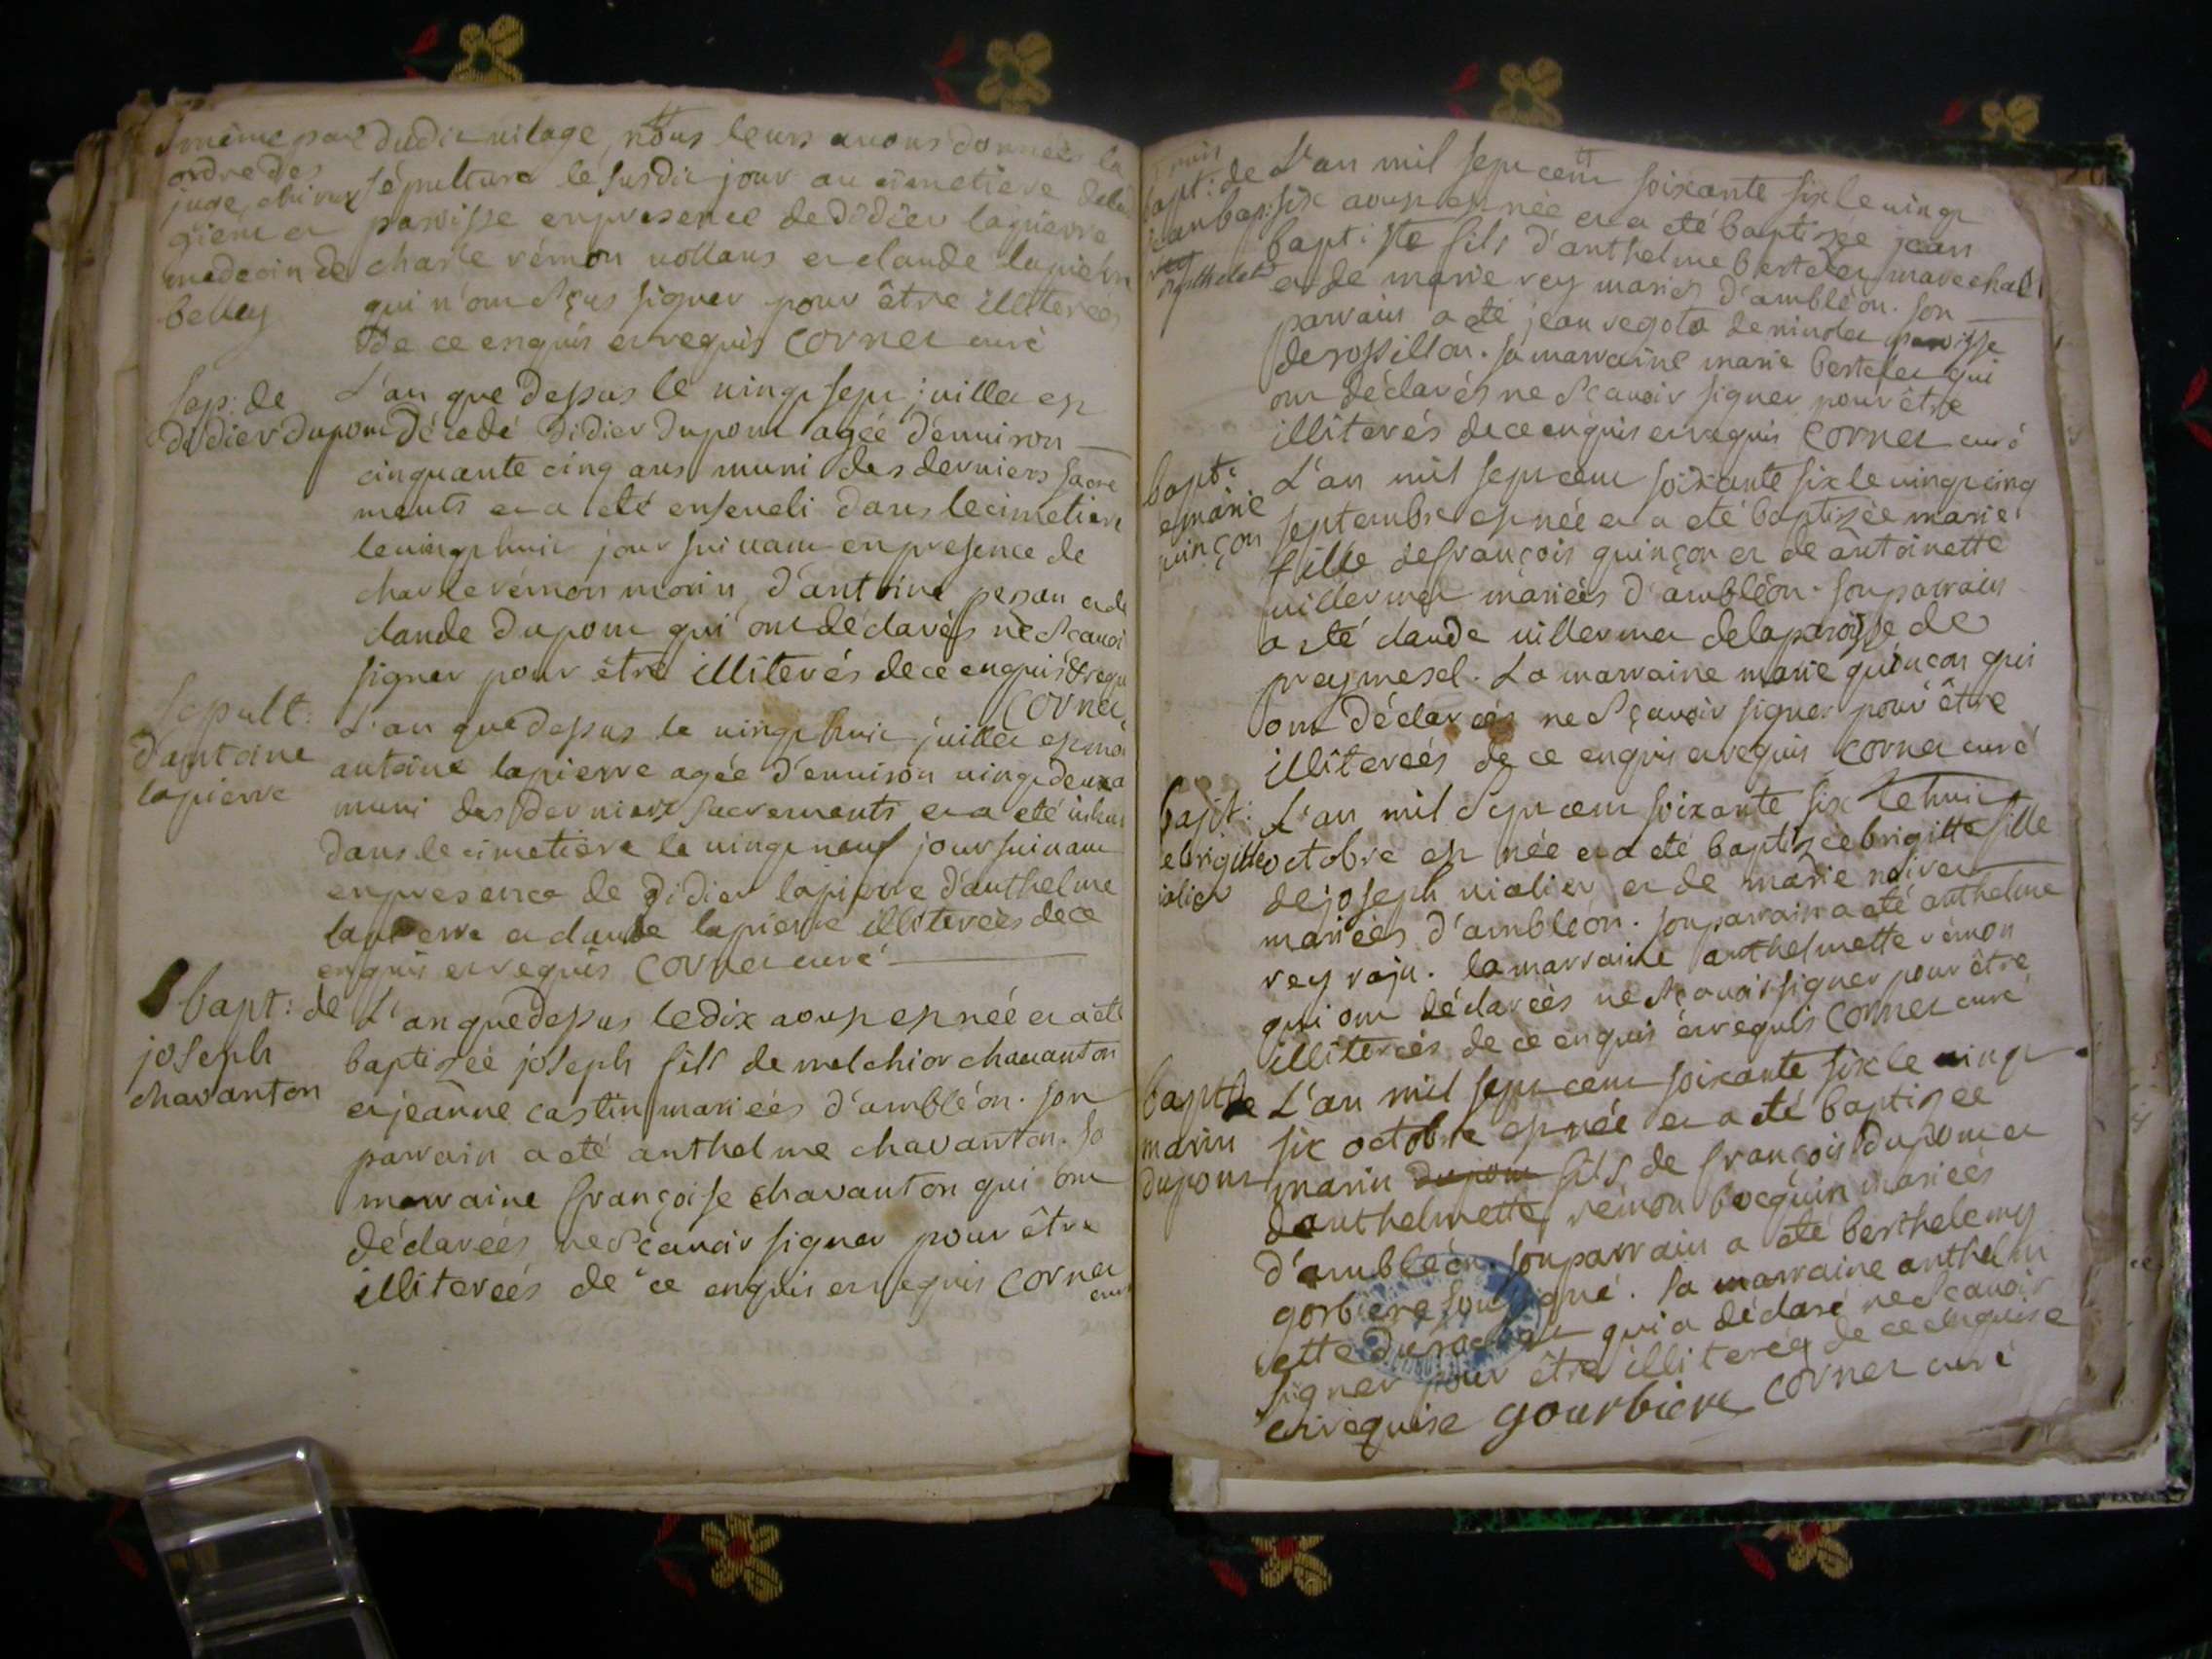 même par
ordre des
juge, chirur
giens et
medecin de
belley
dudit vilage, nous leurs avons donnéés la
sépulture le susdit jour au cimetiere dela
paroisse en presence de didier lapierre
charle rémon vollans et claude lapierre
qui n'ont sçus signer pour être illiterées
de ce enquis et requis cornet curé
sep: de
didier dupont
L'an que dessus le vingt sept juillet est
décedé didier dupont agée d'environ
cinquante cinq ans muni des derniers sacre
ments et a été enseveli dans le cimetiere
le vingt huit jour suivant en presence de
charle rémon morin, d'antoine pezan et de
claude dupont qui ont déclarés ne scavoir
signer pour être illiterés de ce enquis & requis
cornet
sepult:
d'antoine
lapierre
L'an que dessus le vingt huit juillet est mo
antoine lapierre agée d'environ vingt deux a
muni des derniers sacrements et a été inhu
dans le cimetiere le vingt neuf jour suivant
en presence de didier lapierre d'anthelme
lapierre et claude lapierre illiterées de ce
enquis et requis cornet curé
bapt: de
joseph
chavanton
L'an que dessus le dix aoust est née et a été
baptizée joseph fils de melchior chavanton
et jeanne castin mariées d'ambléon. son
parrain a été anthelme chavanton. sa
marraine françoise chavanton qui ont
déclarées ne scavoir signer pour être
illiterées de ce enquis et requis cornet
curé
bapt: de
jean bap:
berthelet
L'an mil sept cent soixante six le vingt
six aoust est née et a été baptizée jean
baptiste fils d'anthelme bertelet marechal
et de marie rey mariés d'ambléon. son
parrain a été jean regota de paroisse
de rossillon. sa marraine marie bertelet qui
ont déclarés ne scavoir signer pour être
illiterés de ce enquis et requis cornet curé
bapt:
e marie
uinçon
L'an mil sept cent soixante six le vingt cinq
septembre est née et a été baptizée marie
fille de françois quinçon et de antoinette
villermet mariées d'ambléon. son parrain
a été claude villermet de la paroisse de
preymesel. La marraine marie quinçon qui
ont déclarées ne sçavoir signer pour être
illiterées de ce enquis et requis cornet curé
bapt:
e brigitte
iolier
L'an mil sept cent soixante six le huit
octobre est née et a été baptizée brigitte fille
de joseph violier et de marie noiret
mariées d'ambléon. son parrain a été anthelme
rey raju. la marraine anthelmette rémon
qui ont déclarées ne sçavoir signer pour être
illiterées de ce enquis et requis cornet curé
bapt de
marin
dupont
L'an mil sept cent soixante six le vingt
six octobre est née et a été baptizée
marin dupont fils de françois dupont et
d'anthelmette rémon bocquin mariées
d'ambléon. son parrain a été berthelemy
gorbiere soussigné. sa marraine anthelm
ette qui a déclaré ne scavoir
signer pour être illiterég de ce enquise
et requise gourbiere cornet curé